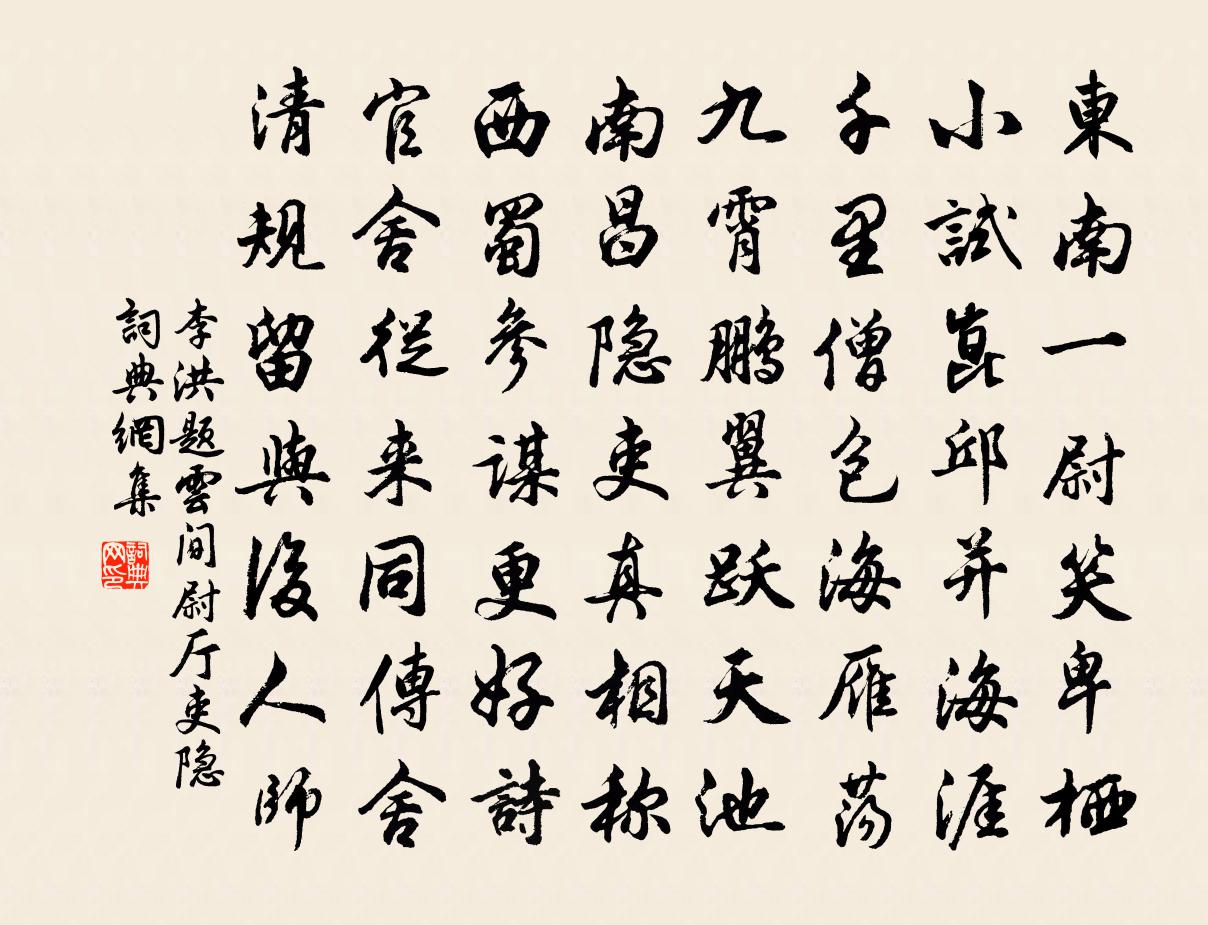 東南一尉笑卑栖
小試崑邱并海涯
千里僧包海雁荡
九霄鹏翼跃天池
南昌隐吏真相称
西蜀參謀更好詩
官舍從来同傳舍
清规留與後人師
李洪题雲间尉厅吏隐
詞典網集
詞典网印